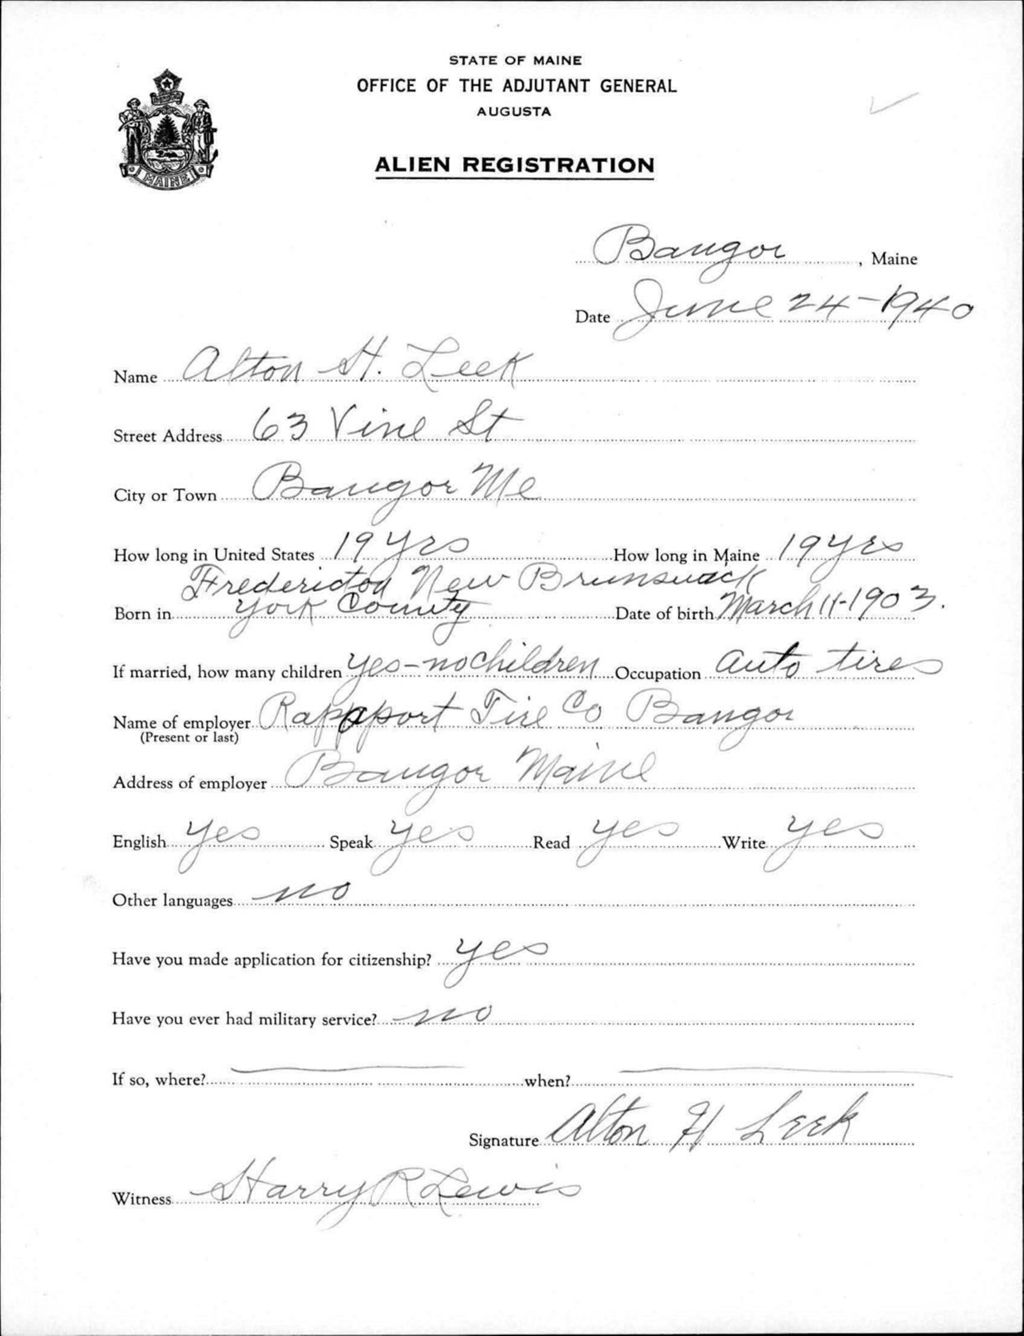 STATE OF MAINE
OFFICE OF THE ADJUTANT GENERAL
AUGUSTA
ALIEN REGISTRATION
MAINE
Bangor, Maine
Date June 24-1940
Name Alton H. Leek
Street Address 63 Vine St
City or Town Bangor Me
How long in United States 19 yrs How long in Maine 19 yrs
Fredericton New Brunswick
Born in York County Date of birth March 11-1903.
If married, how many children yes-no children Occupation Auto tires
Name of employer Rappaport Tire Co Bangor
(Present or last)
Address of employer Bangor Maine
English yes Speak yes Read yes Write yes
Other languages no
Have you made application for citizenship? yes
Have you ever had military service? no
If so, where? when?
Signature Alton H Leek
Witness Harry R Lewis